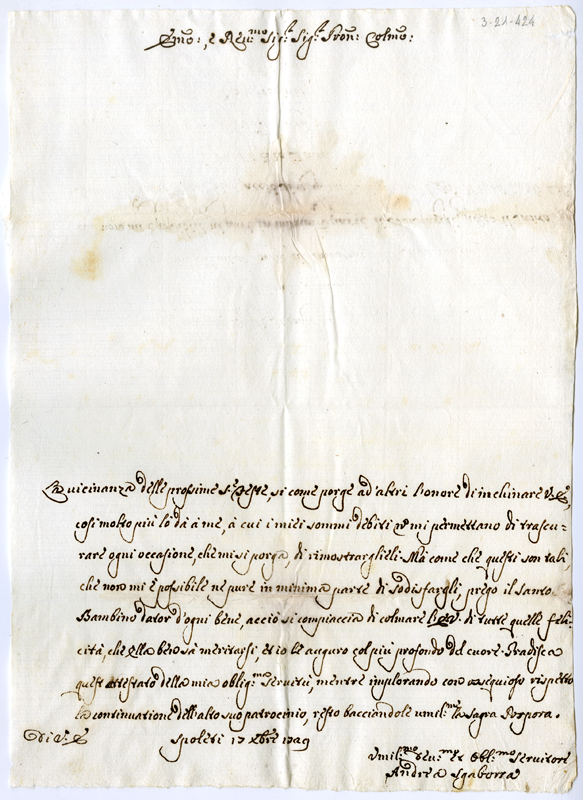 3-21-424
Emo:, e Reu:mo Sig:r Sig:r Pron: Colmo:
La uicinanza delle prossime S:te feste, si come porge ad'altri l'onore di inchinare V:E:,
cosi molto più lo dà à me, à cui i miei sommi debiti non mi permettano di trascu-
rare ogni occasione, che mi si porga, di rimostrarglieli. Mà come che questi son tali
che non mi è possibile ne pure in minima parte di sodisfargli, prego il Santo
Bambino dator d'ogni bene, acciò si compiaccia di colmare l'E:V: di tutte quelle feli-
cità, che ella ben sà meritarsi, et io le auguro col più profondo del cuore. Gradisca
quest'attestato della mia oblig:ma seruitù, mentre implorando con ossequioso rispetto
la continuatione dell'alto suo patrocinio, resto bacciandole umil:mte la Sagra Porpora.
Di V: E: Spoleti 17 Xbre 1729
Umil:mo Deu:mo et Obl:mo Seruitore
Andrea Sgaborra